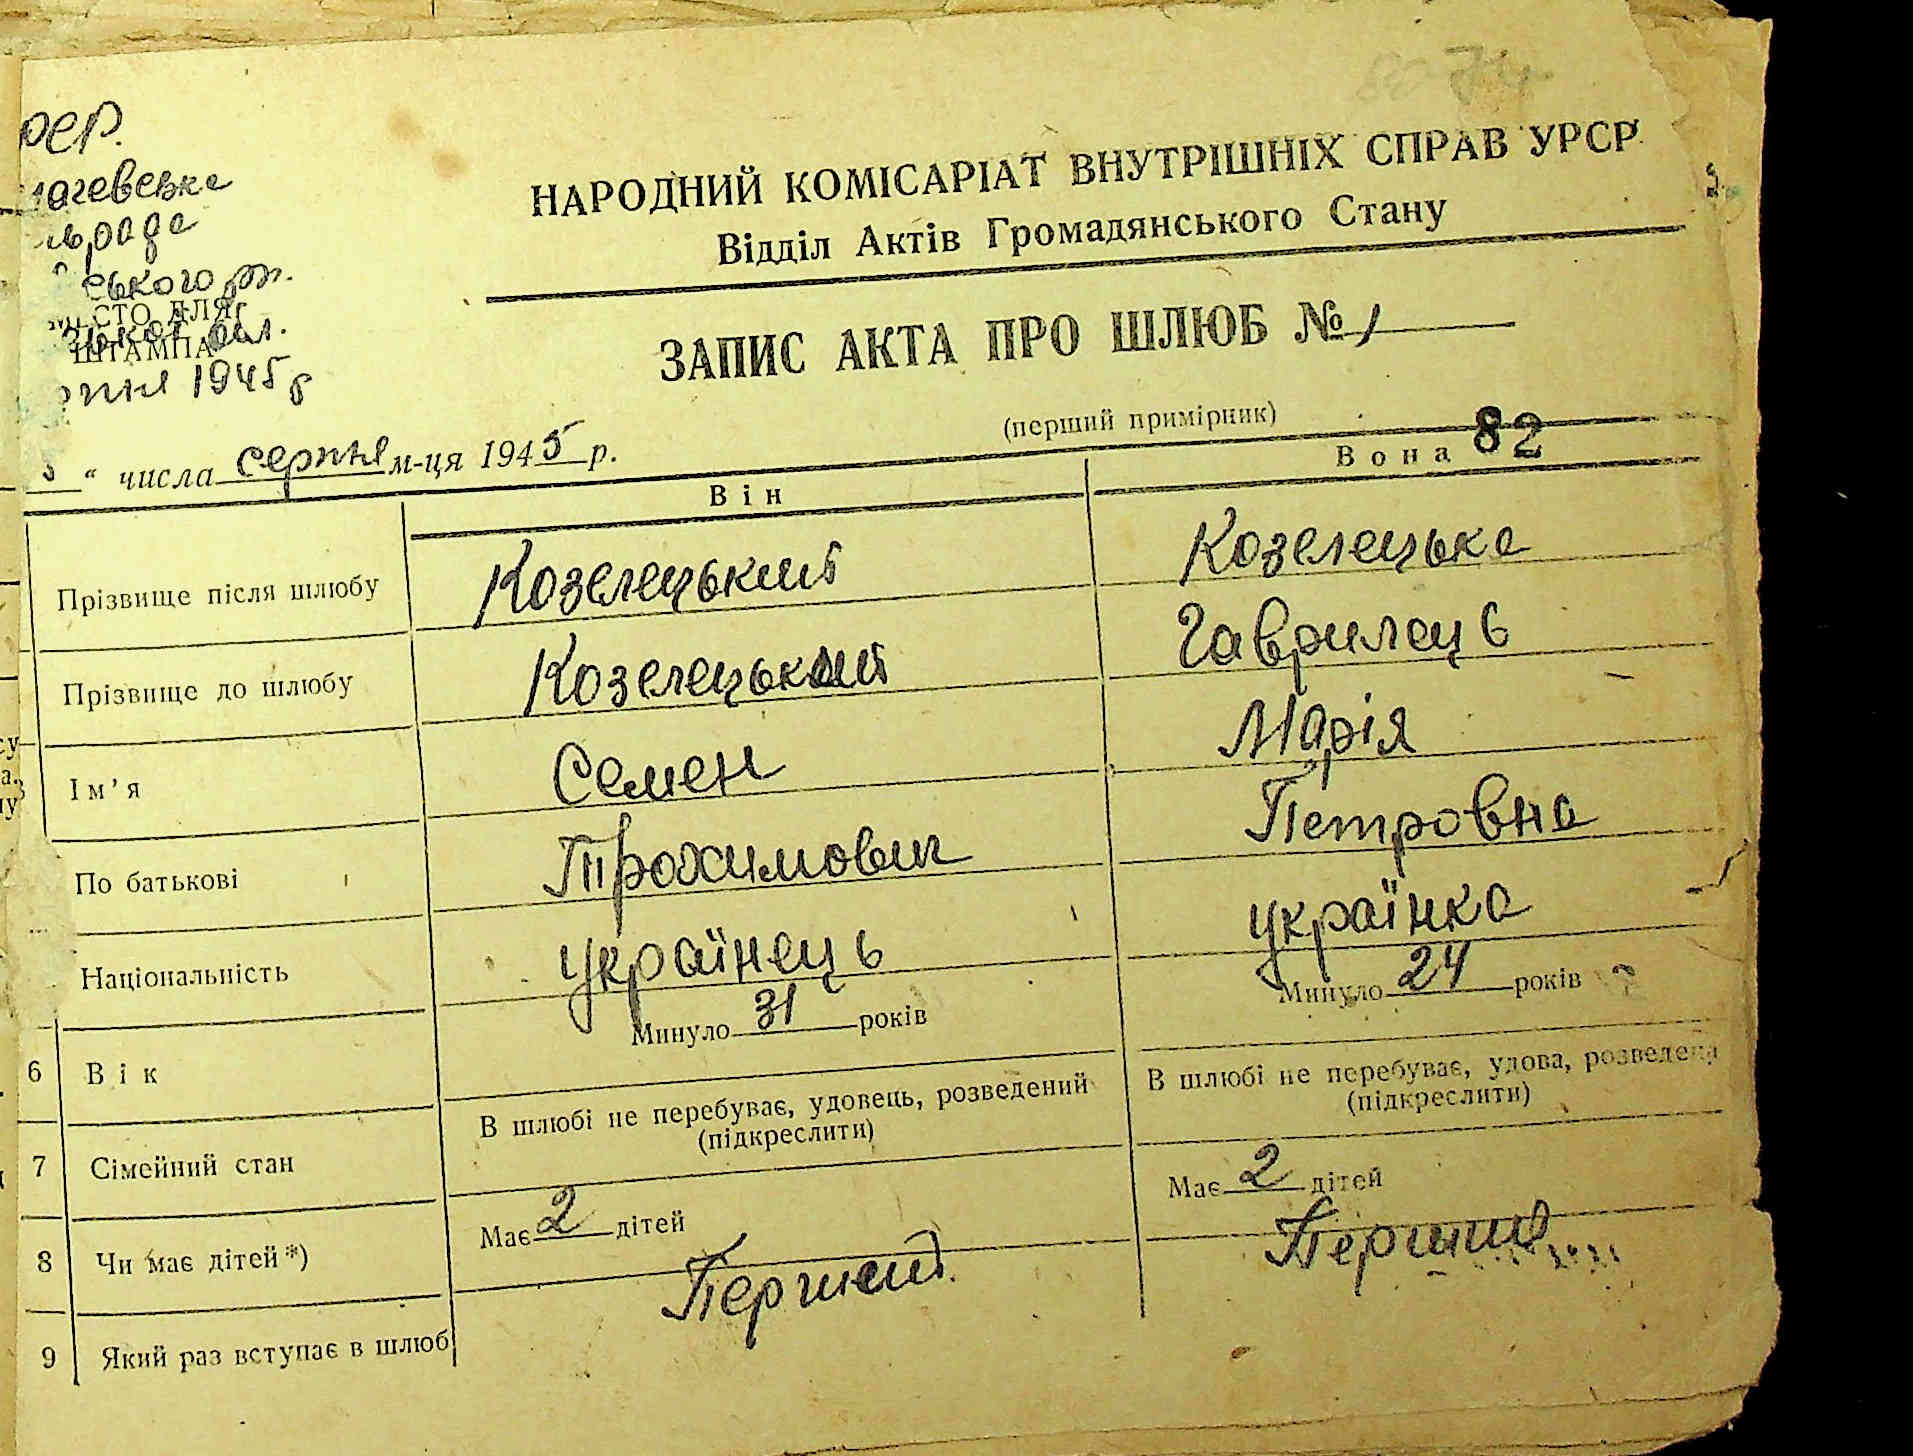 НАРОДНИЙ КОМІСАРІАТ ВНУТРІШНІХ СПРАВ УРСР
Відділ Актів Громадянського Стану
ського рн.
МІСТО ДЛЯ
ШТАМПА
рпня 1945 р
ЗАПИС АКТА ПРО ШЛЮБ № 1
(перший примірник)
“ числа серпня м-ця 1945 р.
82
Він Вона
Прізвище після шлюбу Козелецький Козелецька
Прізвище до шлюбу Козелецький Гаврилець
Ім’я Семен Марія
По батькові Трохимович Петровна
Національність українець українка
6 Вік Минуло 31 років Минуло 24 років
7 Сімейний стан В шлюбі не перебуває, удовець, розведений В шлюбі не перебуває, удова, розведена
(підкреслити) (підкреслити)
8 Чи має дітей*) Має 2 дітей Має 2 дітей
9 Який раз вступає в шлюб Перший Перший